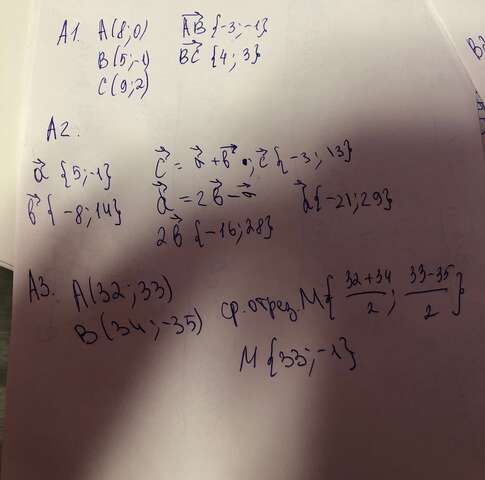 A1. A(8;0) AB{-3;-1}
B(5;-1) BC{4;3}
C(9;2)
A2.
a{5;-1} c = a + b; c{-3;13}
b{-8;14} d = 2b - a d{-21;29}
2b{-16;28}
A3. A(32;33)
B(34;-35) ср. отрез. M{32+34/2; 33-35/2}
M{33;-1}